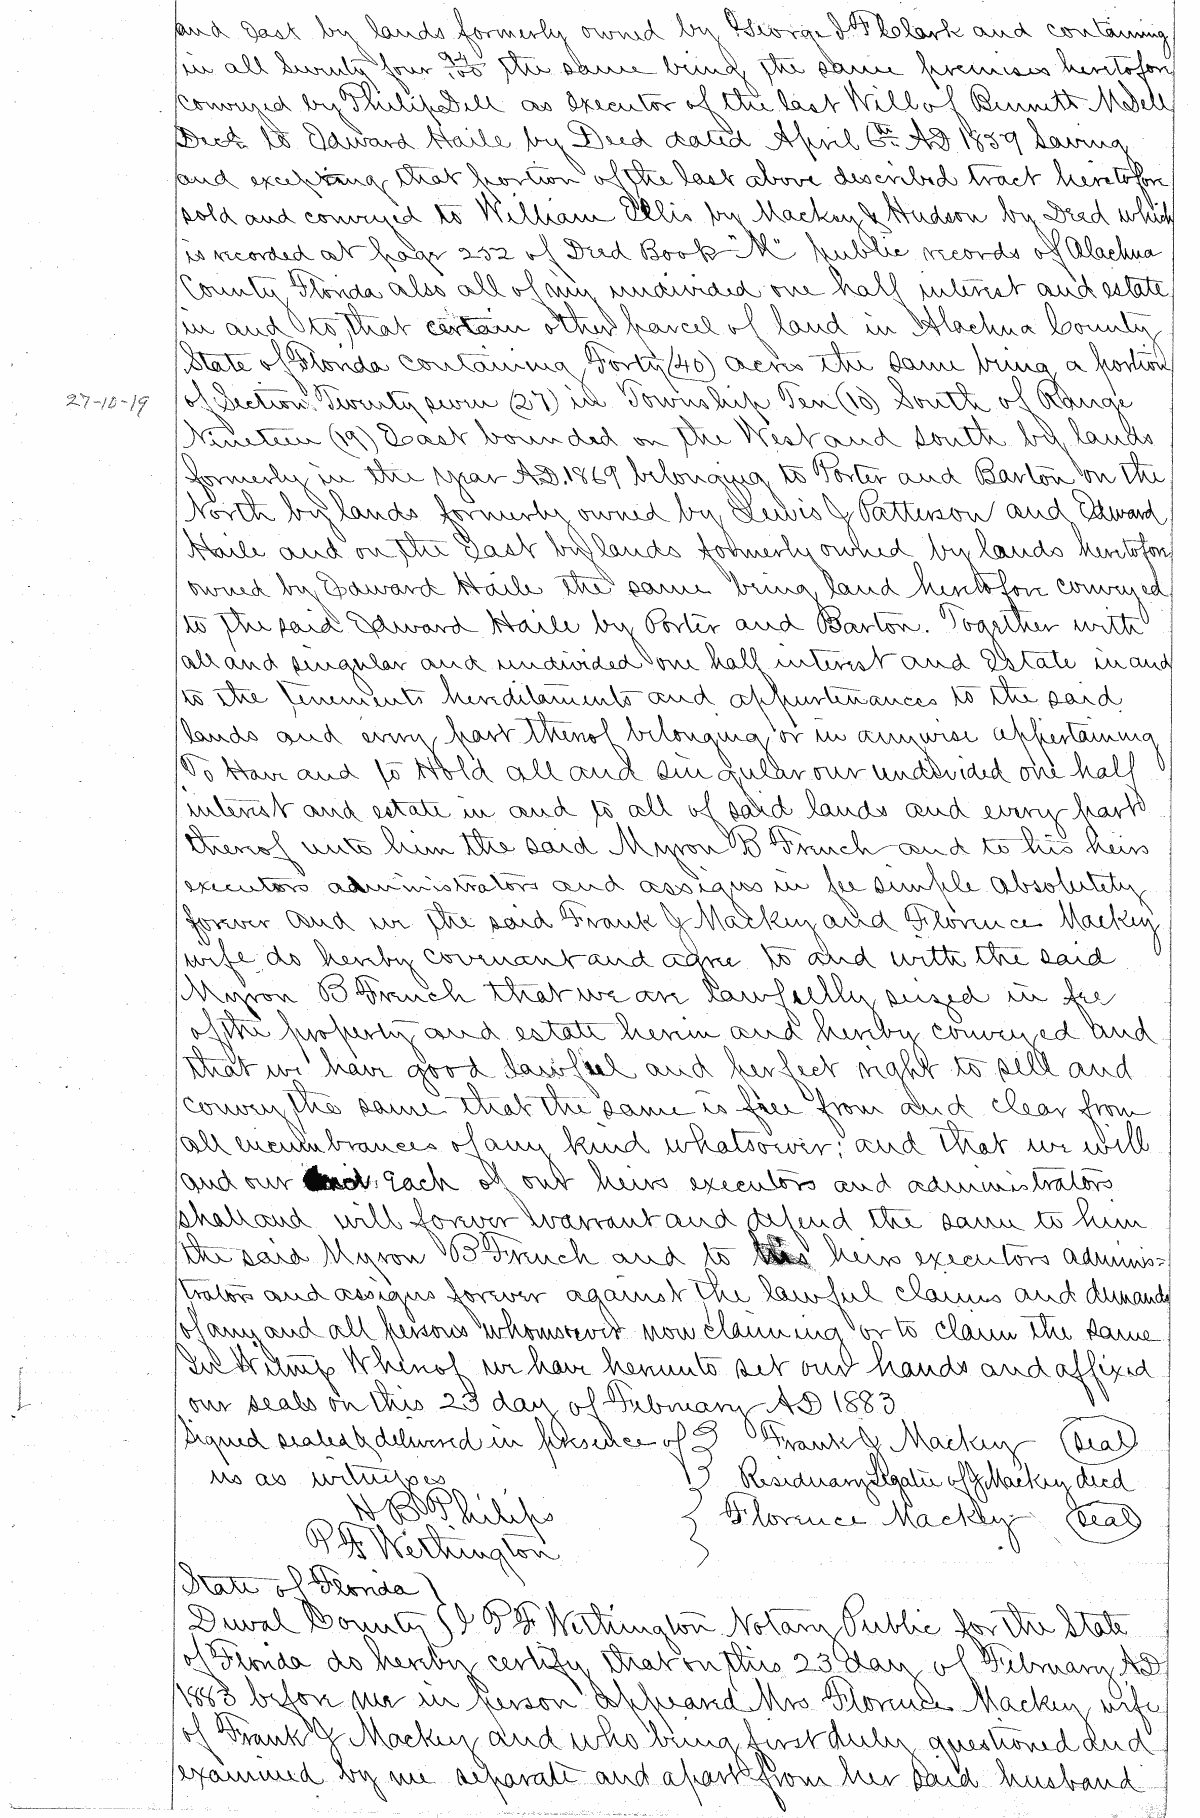 and East by lands formerly owned by George I F Clark and containing
in all Twenty four 94/100 the same being the same premises heretofore
conveyed by Philip Dell as Executor of the last Will of Bennett M Dell
Decd to Edward Haile by Deed dated April 6th AD 1859 Saving
and excepting that portion of the last above described tract heretofore
sold and conveyed to William Ellis by Mackey & Hudson by Deed which
is recorded at page 252 of Deed Book "M" public records of Alachua
County Florida also all of my undivided one half interest and estate
in and to that certain other parcel of land in Alachua County
State of Florida containing Forty (40) acres the same being a portion
27-10-19 of Section Twenty seven (27) in Township Ten (10) South of Range
Nineteen (19) East bounded on the West and South by lands
formerly in the year AD. 1869 belonging to Porter and Barton on the
North by lands formerly owned by Lewis J Patterson and Edward
Haile and on the East by lands formerly owned by lands heretofore
owned by Edward Haile the same being land heretofore conveyed
to the said Edward Haile by Porter and Barton. Together with
all and singular and undivided one half interest and Estate in and
to the tenements hereditaments and appurtenances to the said
lands and every part thereof belonging or in anywise appertaining
To Have and to Hold all and singular our undivided one half
interest and estate in and to all of said lands and every part
thereof unto him the said Myron B French and to his heirs
executors administrators and assigns in fee simple absolutely
forever and we the said Frank J Mackey and Florence Mackey
wife do hereby covenant and agree to and with the said
Myron B French that we are lawfully seized in fee
of the property and estate herein and hereby conveyed and
that we have good lawful and perfect right to sell and
convey the same that the same is free from and clear from
all encumbrances of any kind whatsoever; and that we will
and our Each of our heirs executors and administrators
shall and will forever warrant and defend the same to him
the said Myron B French and to his heirs executors adminis=
trators and assigns forever against the lawful claims and demands
of any and all persons whomsoever now claiming or to claim the same
In Witness Whereof we have hereunto set our hands and affixed
our seals on this 23 day of February AD 1883
Signed sealed & delivered in presence of Frank J Mackey (Seal)
us as witnesses Residuary Legatee of J Mackey decd
H B Philips Florence Mackey (Seal)
P F Wethington
State of Florida )
Duval County ) I P F Wethington Notary Public for the State
of Florida do hereby certify that on this 23 day of February AD
1883 before me in person appeared Mrs Florence Mackey wife
of Frank J Mackey and who being first duly questioned and
examined by me separate and apart from her said husband